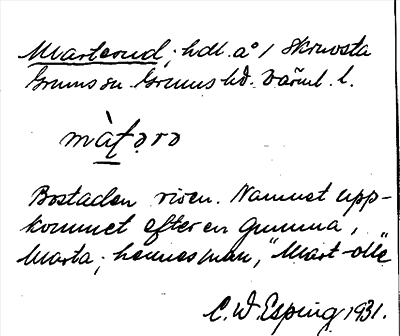 Marterud; hdl. å 1 Skruvsta
Grums sn. Grums hd. Värml. l.
màt̩ərə
Bostaden riven. Namnet upp-
kommet efter en gumma,
Marta; hennes man, "Mart-Olle"
C. W. Esping, 1931.